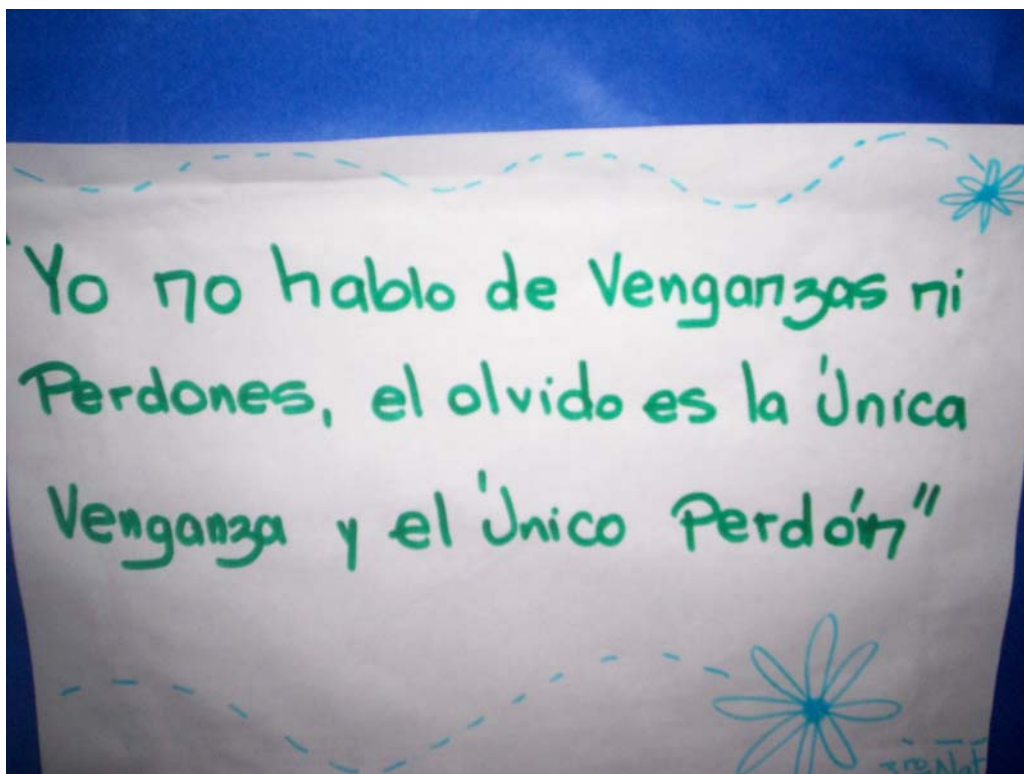 "Yo no hablo de Venganzas ni
Perdones, el olvido es la Única
Venganza y el Único Perdón"